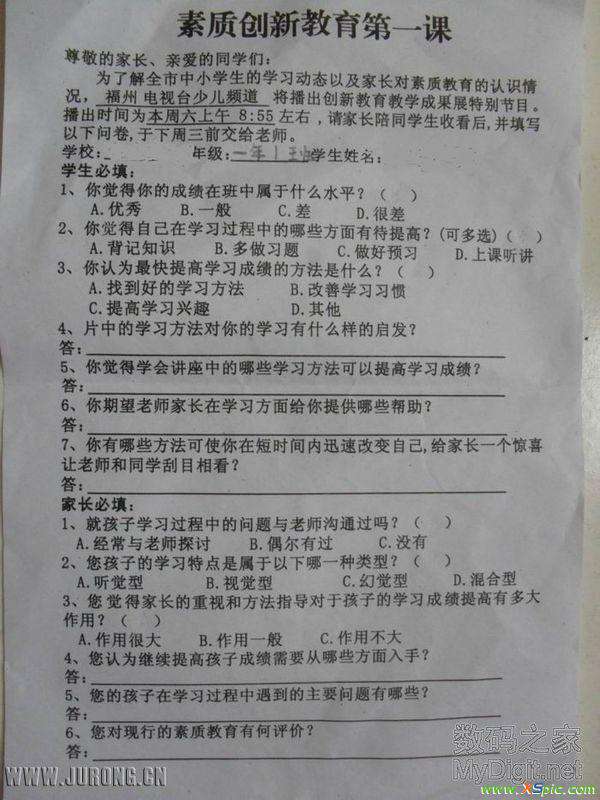 素质创新教育第一课
尊敬的家长、亲爱的同学们：
为了解全市中小学生的学习动态以及家长对素质教育的认识情
况，福州 电视台少儿频道 将播出创新教育教学成果展特别节目。
播出时间为本周六上午 8:55左右，请家长陪同学生收看后,并填写
以下问卷,于下周三前交给老师。
学校: 年级:一年1班学生姓名:
学生必填：
1、你觉得你的成绩在班中属于什么水平？（ ）
A.优秀 B.一般 C.差 D.很差
2、你觉得自己在学习过程中的哪些方面有待提高？(可多选)（ ）
A.背记知识 B.多做习题 C.做好预习 D.上课听讲
3、你认为最快提高学习成绩的方法是什么？（ ）
A.找到好的学习方法 B.改善学习习惯
C.提高学习兴趣 D.其他
4、片中的学习方法对你的学习有什么样的启发？
答:
5、你觉得学会讲座中的哪些学习方法可以提高学习成绩？
答:
6、你期望老师家长在学习方面给你提供哪些帮助？
答:
7、你有哪些方法可使你在短时间内迅速改变自己,给家长一个惊喜
让老师和同学刮目相看？
答:
家长必填：
1、就孩子学习过程中的问题与老师沟通过吗？（ ）
A.经常与老师探讨 B.偶尔有过 C.没有
2、您孩子的学习特点是属于以下哪一种类型？（ ）
A.听觉型 B.视觉型 C.幻觉型 D.混合型
3、您觉得家长的重视和方法指导对于孩子的学习成绩提高有多大
作用？（ ）
A.作用很大 B.作用一般 C.作用不大
4、您认为继续提高孩子成绩需要从哪些方面入手？
答:
5、您的孩子在学习过程中遇到的主要问题有哪些？
答:
6、您对现行的素质教育有何评价？
答:
数码之家
MyDigit.net
WWW.JURONG.CN
www.XSpic.com